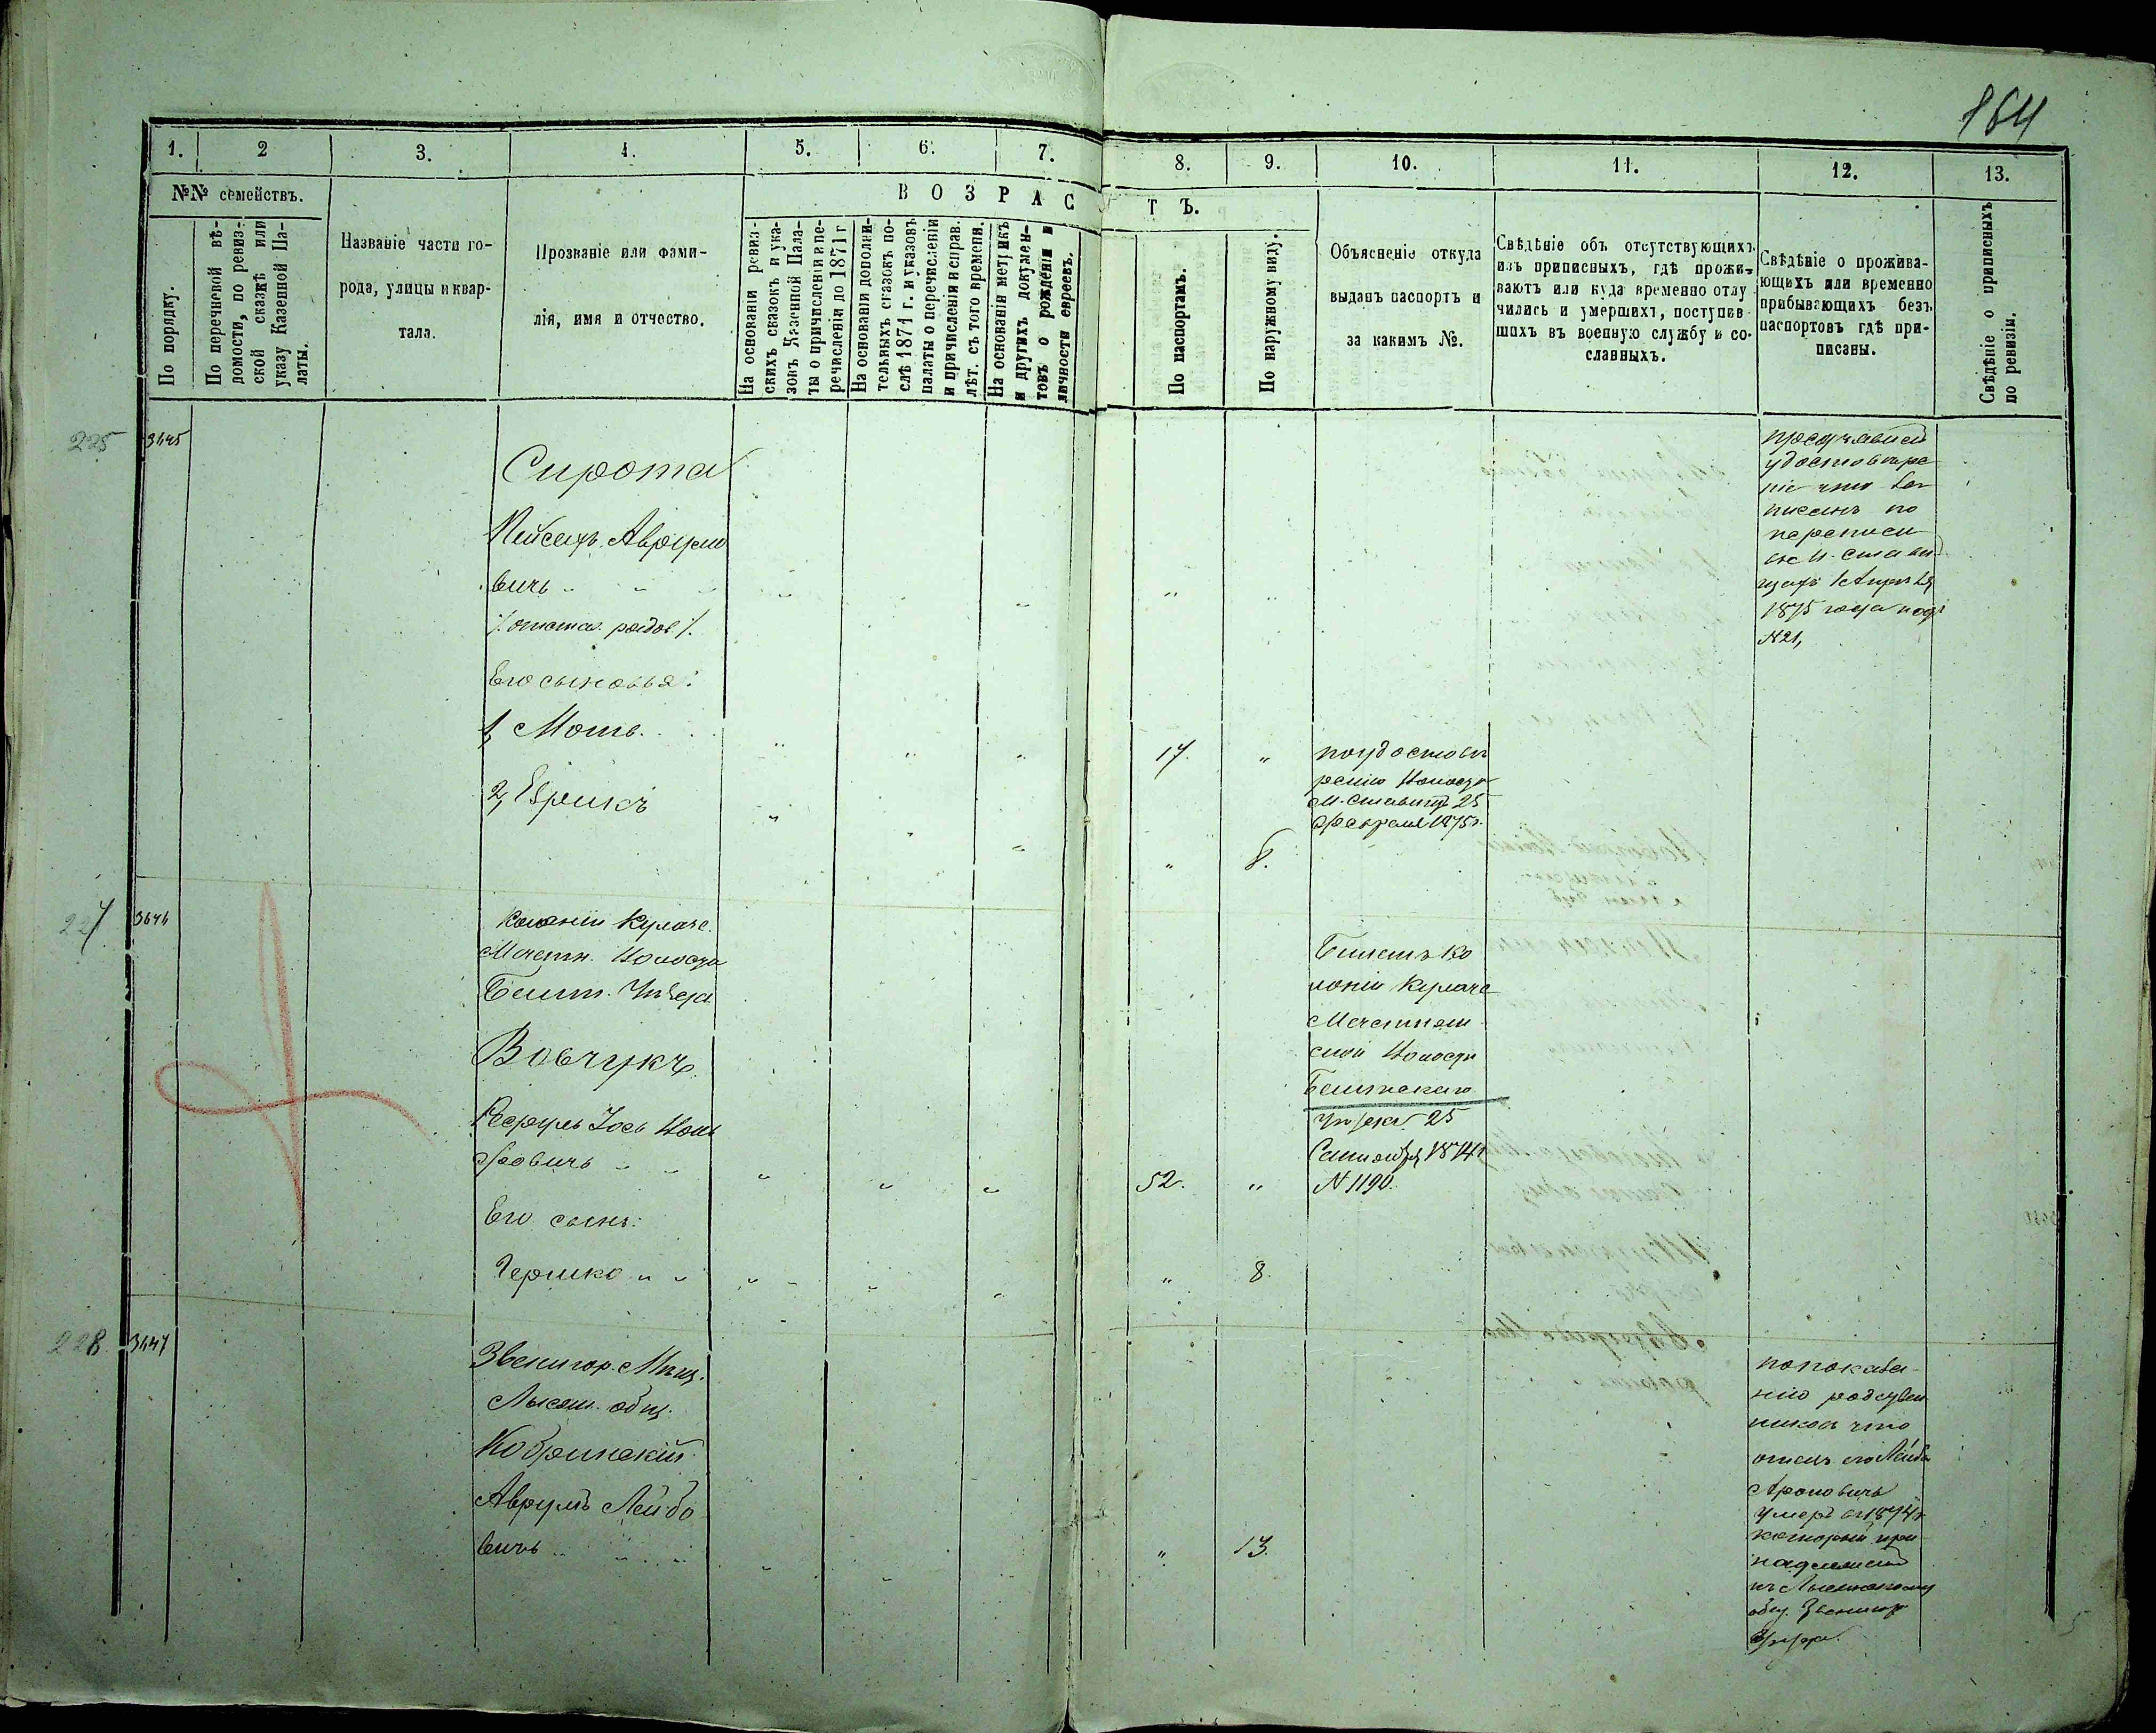 164
1. 2 3. 4. 5. 6. 7. 8. 9. 10. 11. 12. 13.
№№ семействъ.
По порядку.
По перечневой вѣ-
домости, по ревиз-
ской сказкѣ или
указу Казенной Па-
латы.
Названіе части го-
рода, улицы и квар-
тала.
Прозваніе или фами-
лія, имя и отчество.
ВОЗРАСТЪ.
На основаніи ревиз-
скихъ сказокъ и ука-
зовъ Казенной Пала-
ты о причисленіи и пе-
речисленіи до 1871 г
На основаніи дополни-
тельныхъ сказокъ по-
слѣ 1871 г. и указовъ
палаты о перечисленіи
и причисленіи и справ.
лѣт. съ того времени.
На основаніи метрикъ
и другихъ докумен-
товъ о рожденіи и
личности евреевъ.
По паспортамъ.
По наружному виду.
Объясненіе откуда
выданъ паспортъ и
за какимъ №.
Свѣдѣніе объ отсутствующихъ
изъ приписныхъ, гдѣ прожи-
ваютъ или куда временно отлу
чились и умершихъ, поступив-
шихъ въ военную службу и со-
сланныхъ.
Свѣдѣніе о прожива-
ющихъ или временно
прибывающихъ безъ
паспортовъ гдѣ при-
писаны.
Свѣдѣніе о приписныхъ
по ревизіи.
225 3645
Сирота
Пейсахъ Авруmo
вичъ
Его сыновья:
1, Моть
2, Еврикъ
17. "
" 8.
по удостовѣ
ренію Волости
М. Ставищъ 25
Февраля 1875 г.
удостовѣре
ніе что за
писанъ по
переписи
въ М. Стави
щахъ 1 Апрѣля
1875 года подъ
№ 21,
227 3646
Колоніи
Мечетн. Волости
Балт. Уѣзда
Вовчукъ
Іось Воль
фовичъ
Его сынъ:
Гершко
52. "
" 8.
Билетъ Ко
лоніи
Мечетнян
ской Волости
Балтскаго
Уѣзда 25
Сентября 1874 г
№ 1190.
228 3647
Звенигор. Мѣщ.
Лысян. общ.
Кобринскій
Аврумъ Лейбо
вичъ
" 13.
по показа-
нію родствен
никовъ что
отецъ его Лейба
Ароновичъ
умеръ въ 1874 г
который при
надлежитъ
къ Лысянскому
общ. Звенигор
Уѣзда.